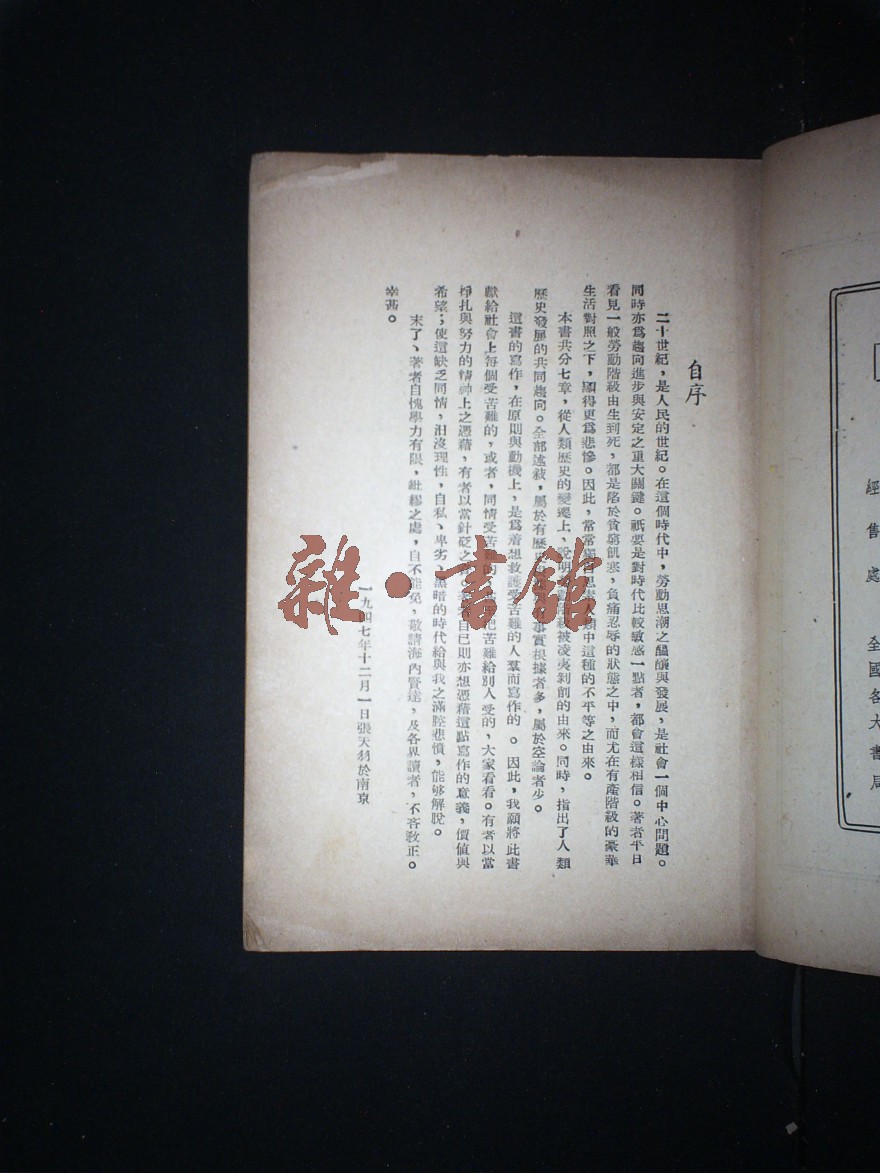 經售處　全國各大書局
自序
二十世紀，是人民的世紀。在這個時代中，勞動思潮之醞釀與發展，是社會一個中心問題。
同時亦爲趨向進步與安定之重大關鍵。祇要是對時代比較敏感一點者，都會這樣相信。著者平日
看見一般勞動階級由生到死，都是陷於貧窮飢寒，負痛忍辱的狀態之中，而尤在有產階級的豪華
生活對照之下，顯得更爲悲慘。因此，常常獨自思索人類中這種的不平等之由來。
本書共分七章，從人類歷史的變遷上，說明勞動階級被凌夷剝削的由來。同時，指出了人類
歷史發展的共同趨向。全部述敍，屬於有歷史事實根據者多，屬於空論者少。
這書的寫作，在原則與動機上，是爲着想救護受苦難的人羣而寫作的。因此，我願將此書
獻給社會上每個受苦難的，或者，同情受苦難的把苦難給別人受的，大家看看。有者以當
掙扎與努力的精神上之憑藉，有者以當針砭之自己則亦想憑藉這點寫作的意義，價值與
希望；使這缺乏同情，汨沒理性，自私、卑劣、黑暗的時代給與我之滿腔悲憤，能够解脫。
末了、著者自愧學力有限，紕繆之處，自不能免，敬請海內賢達，及各界讀者，不吝教正。
幸甚。
一九四七年十二月一日張天羽於南京
雜·書館